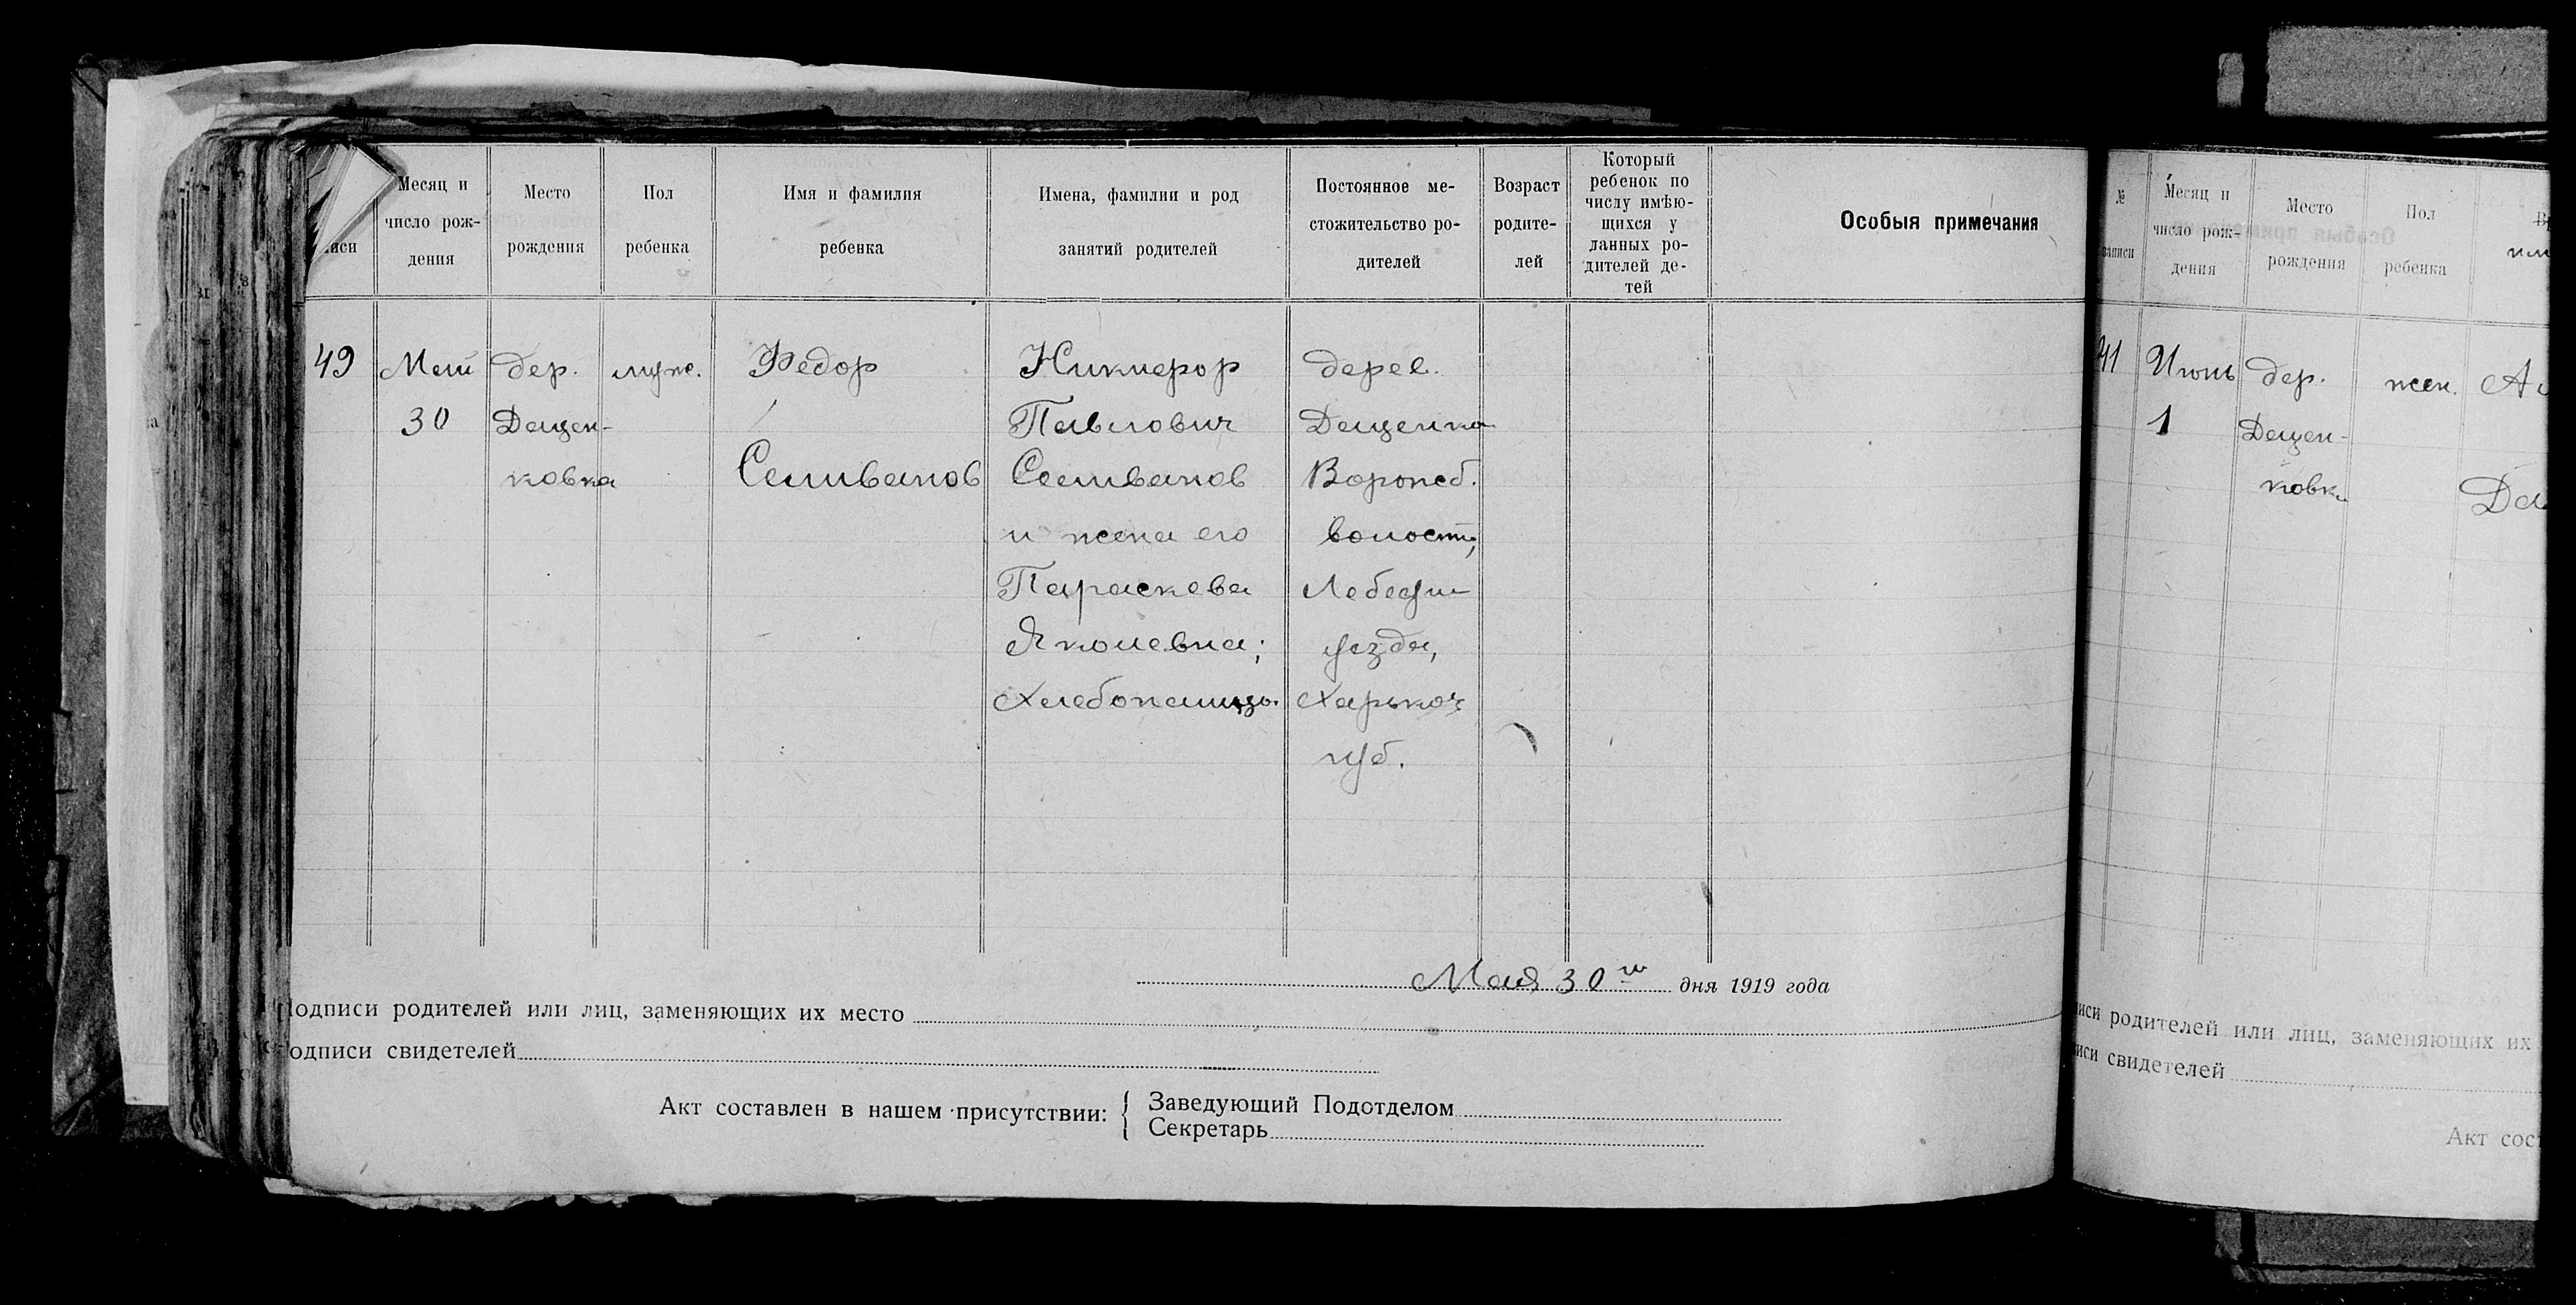 Месяц и
число рож-
дения
Место
рождения
Пол
ребенка
Имя и фамилия
ребенка
Имена, фамилии и род
занятий родителей
Постоянное ме-
стожительство ро-
дителей
Возраст
родите-
лей
Который
ребенок по
числу имѣю-
щихся у
данных ро-
дителей де-
тей
Особыя примечания
49
Май
30
дер.
Дещен-
ковка
муж.
Федор
Селиванов
Никифор
Павлович
Селиванов
и жена его
Параскева
Яколевна;
Хлебопашцы.
дерев.
Дещенка
Ворожб.
волости,
Лебедин
уезда,
Харьков
губ.
Мая 30 го дня 1919 года
Подписи родителей или лиц, заменяющих их место
Подписи свидетелей
Акт составлен в нашем присутствии:
Заведующий Подотделом
Секретарь
№
записи
Месяц и
число рож-
дения
Место
рождения
Пол
ребенка
41
Июнь
1
дер.
Дещен-
ковка
жен.
родителей или лиц, заменяющих их
свидетелей
Акт